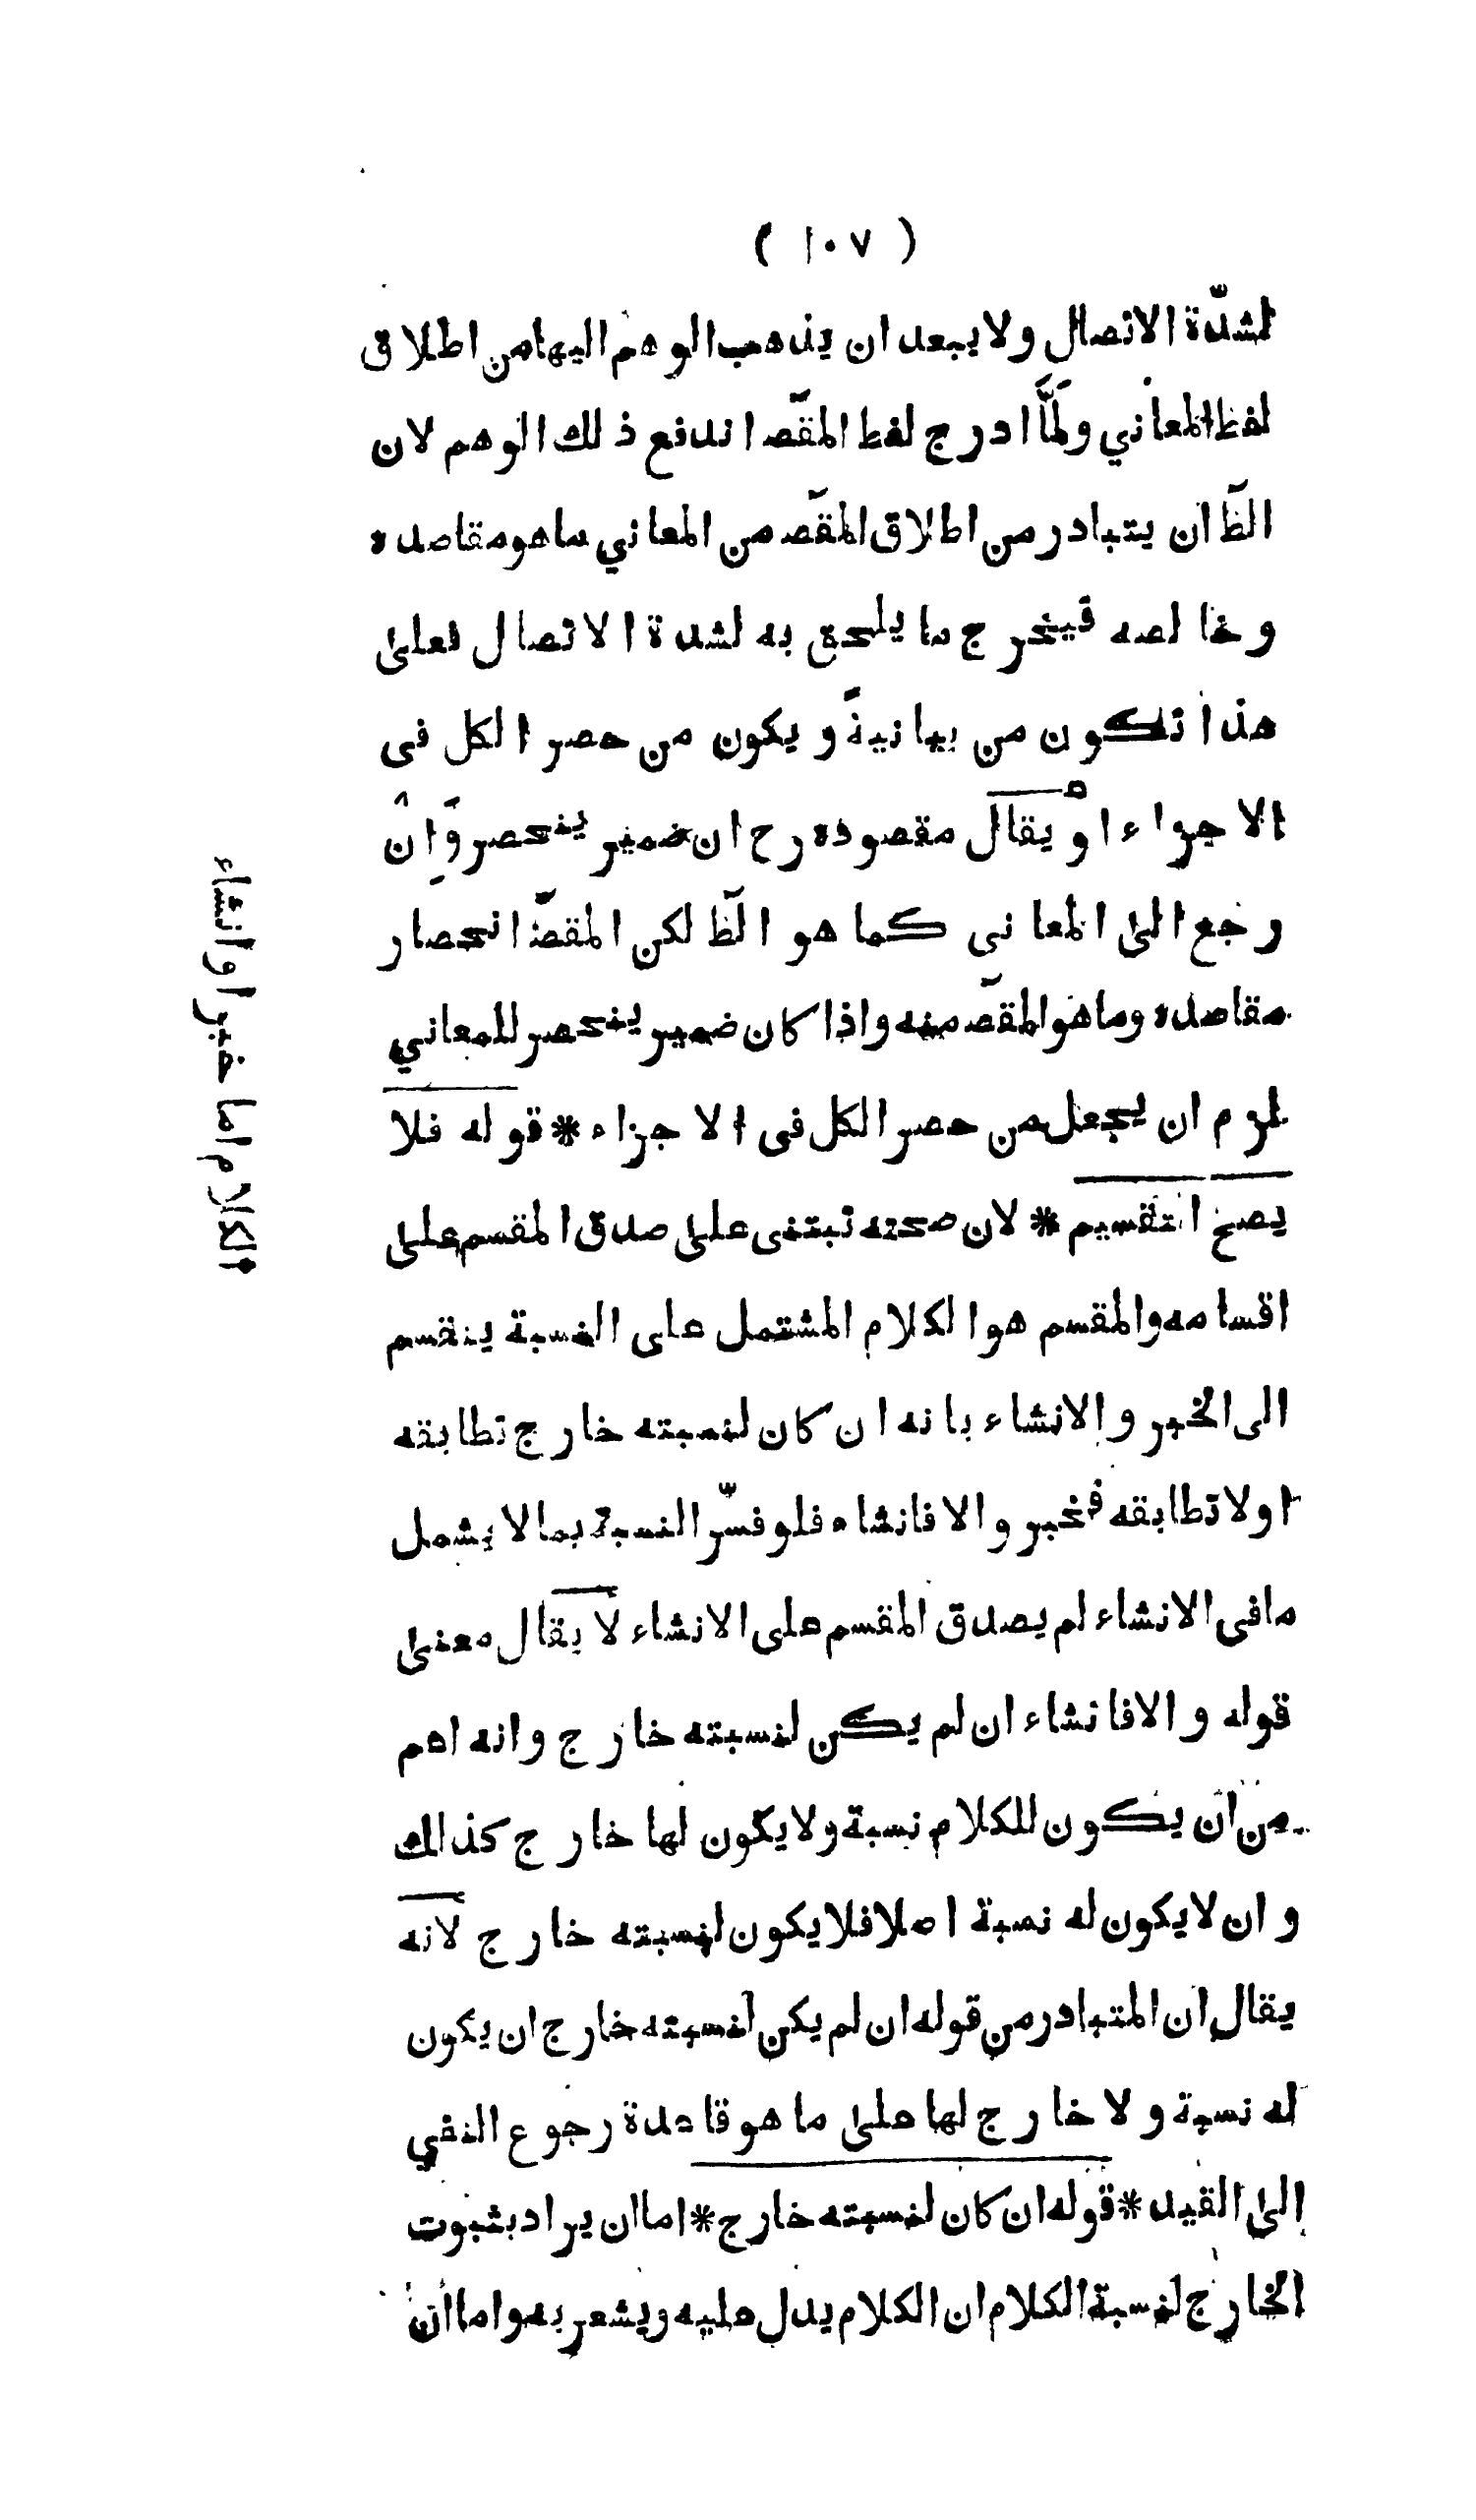 ( ١٠٧ )
لشدّة الاتصال ولا يبعد ان يذهب الوهم اليها من اطلاق
لفظ المعاني ولمّا ادرج لفظ المقصّ اندفع ذلك الوهم لان
الظّ ان يتبادر من اطلاق المقصّ من المعاني ما هو مقاصده
وخالصه فيخرج ما يلحق به لشدة الاتصال فعلى
هذا تكون من بيانية ويكون من حصر الكل فى
الاجزاء او يقال مقصوده رح ان ضمير ينحصر وان
رجع الى المعانى كما هو الظّ لكن المقصّ انحصار
مقاصده وما هو المقصّ منه واذا كان ضمير ينحصر للمعاني
لزم ان يجعل من حصر الكل فى الاجزاء * قوله فلا
يصح التقسيم * لان صحته تبتنى على صدق المقسم على
اقسامه والمقسم هو الكلام المشتمل على النسبة ينقسم
الى الخبر والانشاء بانه ان كان لنسبته خارج تطابقه
اولا تطابقه فخبر والا فانشاء فلو فسّر النسبة بما لا يشمل
ما فى الانشاء لم يصدق المقسم على الانشاء لا يقال معنى
قوله والا فانشاء ان لم يكن لنسبته خارج وانه اعم
من ان يكون للكلام نسبة ولا يكون لها خارج كذالك
وان لا يكون له نسبة اصلا فلا يكون لنسبته خارج لانه
يقال ان المتبادر من قوله ان لم يكن لنسبته خارج ان يكون
له نسبة ولا خارج لها على ما هو قاعدة رجوع النفي
الى القيد * قوله ان كان لنسبته خارج * اما ان يراد بثبوت
الخارج لنسبة الكلام ان الكلام يدل عليه ويشعر به واما ان
الكلام اما خبر او انشاء